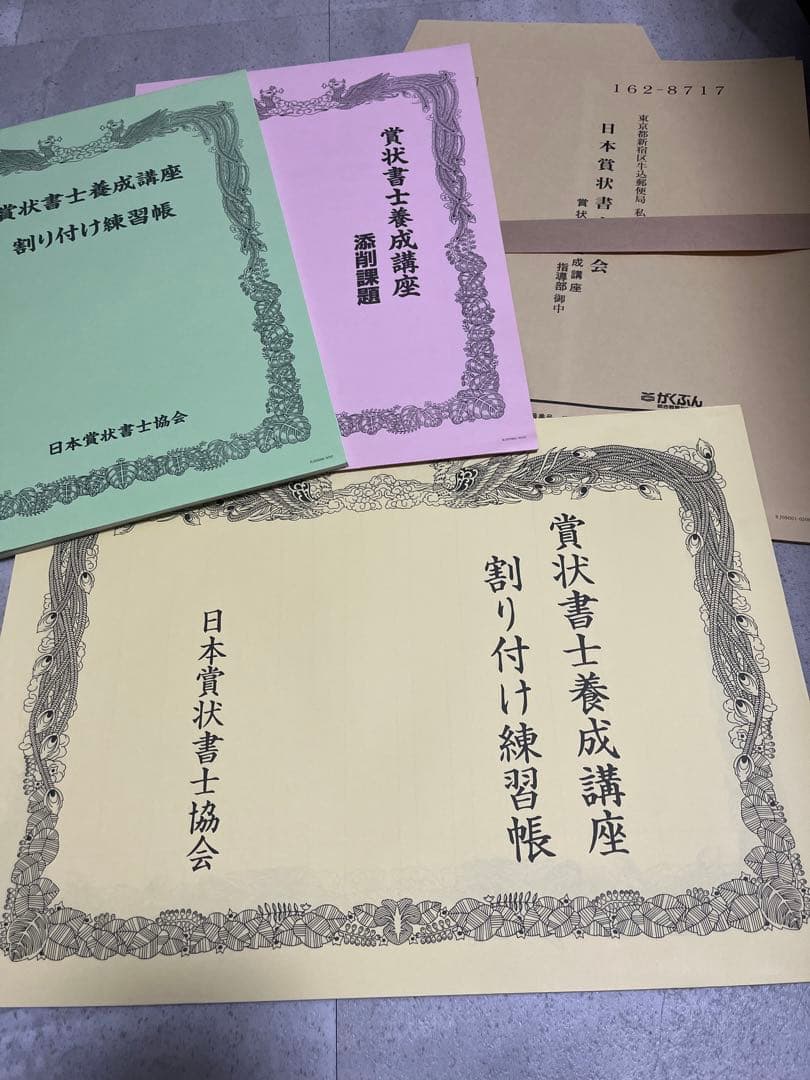 賞状書士養成講座
割り付け練習帳
日本賞状書士協会
賞状書士養成講座
添削課題
162-8717
東京都新宿区牛込郵便局 私
日本賞状書
会
賞状
成講座
指導部 御中
がくぶん
賞状書士養成講座
割り付け練習帳
日本賞状書士協会